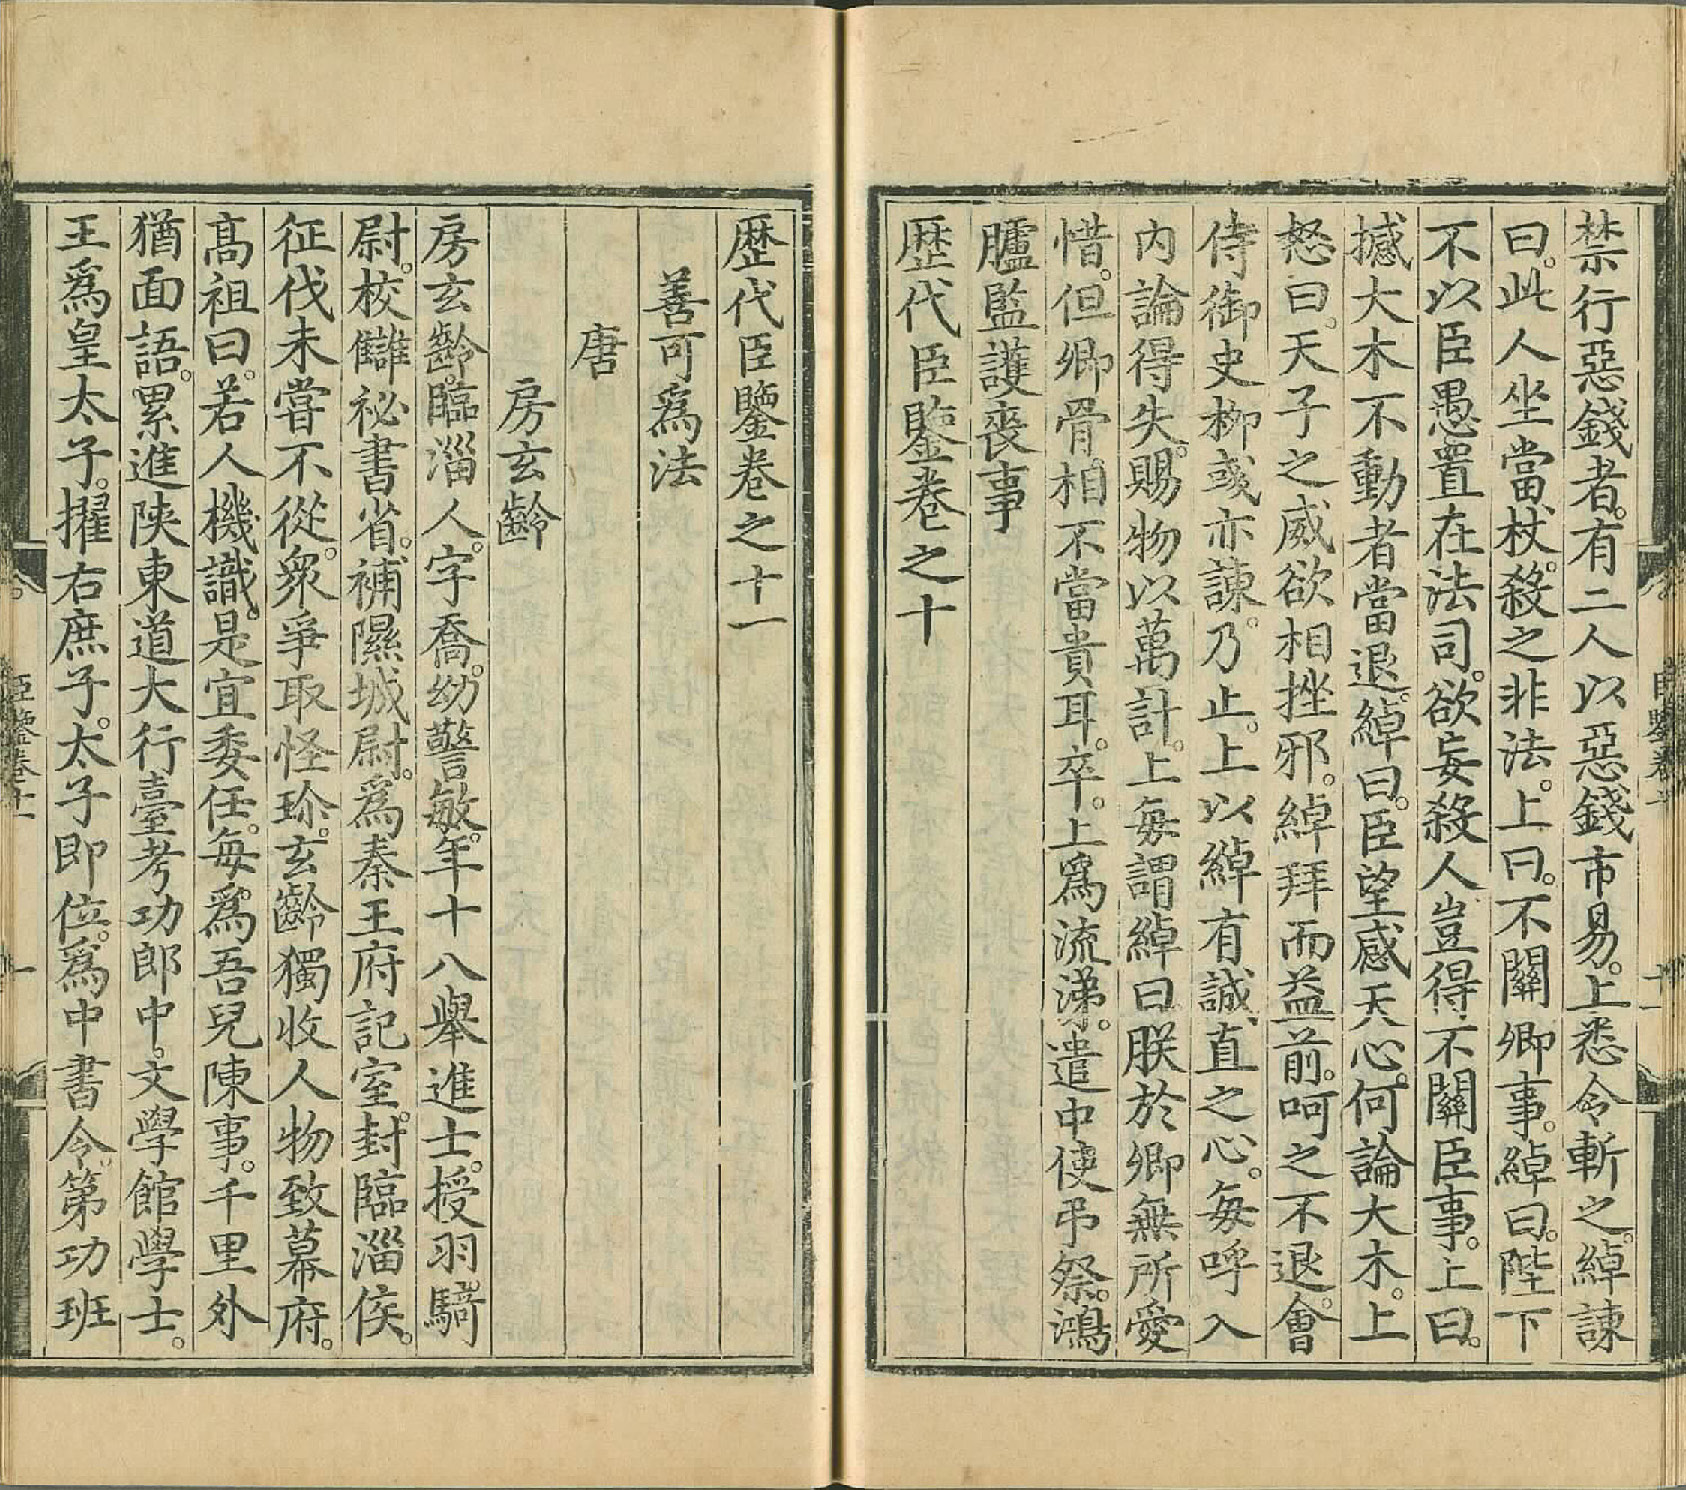 禁行惡錢者。有二人以惡錢市易。上悉令斬之。綽諫
曰。此人坐當杖。殺之非法。上曰。不關卿事。綽曰。陛下
不以臣愚置在法司。欲妄殺人豈得不關臣事。上曰。
撼大木不動者當退。綽曰。臣望感天心。何論大木。上
怒曰。天子之威欲相挫邪。綽拜而益前。呵之不退。會
侍御史柳彧亦諫。乃止。上以綽有誠直之心。每呼入
內論得失。賜物以萬計。上每謂綽曰。朕於卿無所愛
惜。但卿骨相不當貴耳。卒。上爲流涕。遣中使弔祭。鴻
臚監護喪事
歷代臣鑒卷之十
歷代臣鑒卷之十一
善可爲法
唐
房玄齡
房玄齡。臨淄人。字喬。幼警敏。年十八舉進士。授羽騎
尉。校讎祕書省。補隰城尉。爲秦王府記室。封臨淄侯。
征伐未嘗不從。衆爭取怪珍。玄齡獨收人物致幕府。
高祖曰。若人機識。是宜委任。每爲吾兒陳事。千里外
猶面語。累進陝東道大行臺考功郎中。文學館學士。
王爲皇太子。擢右庶子。太子即位。爲中書令。第功班